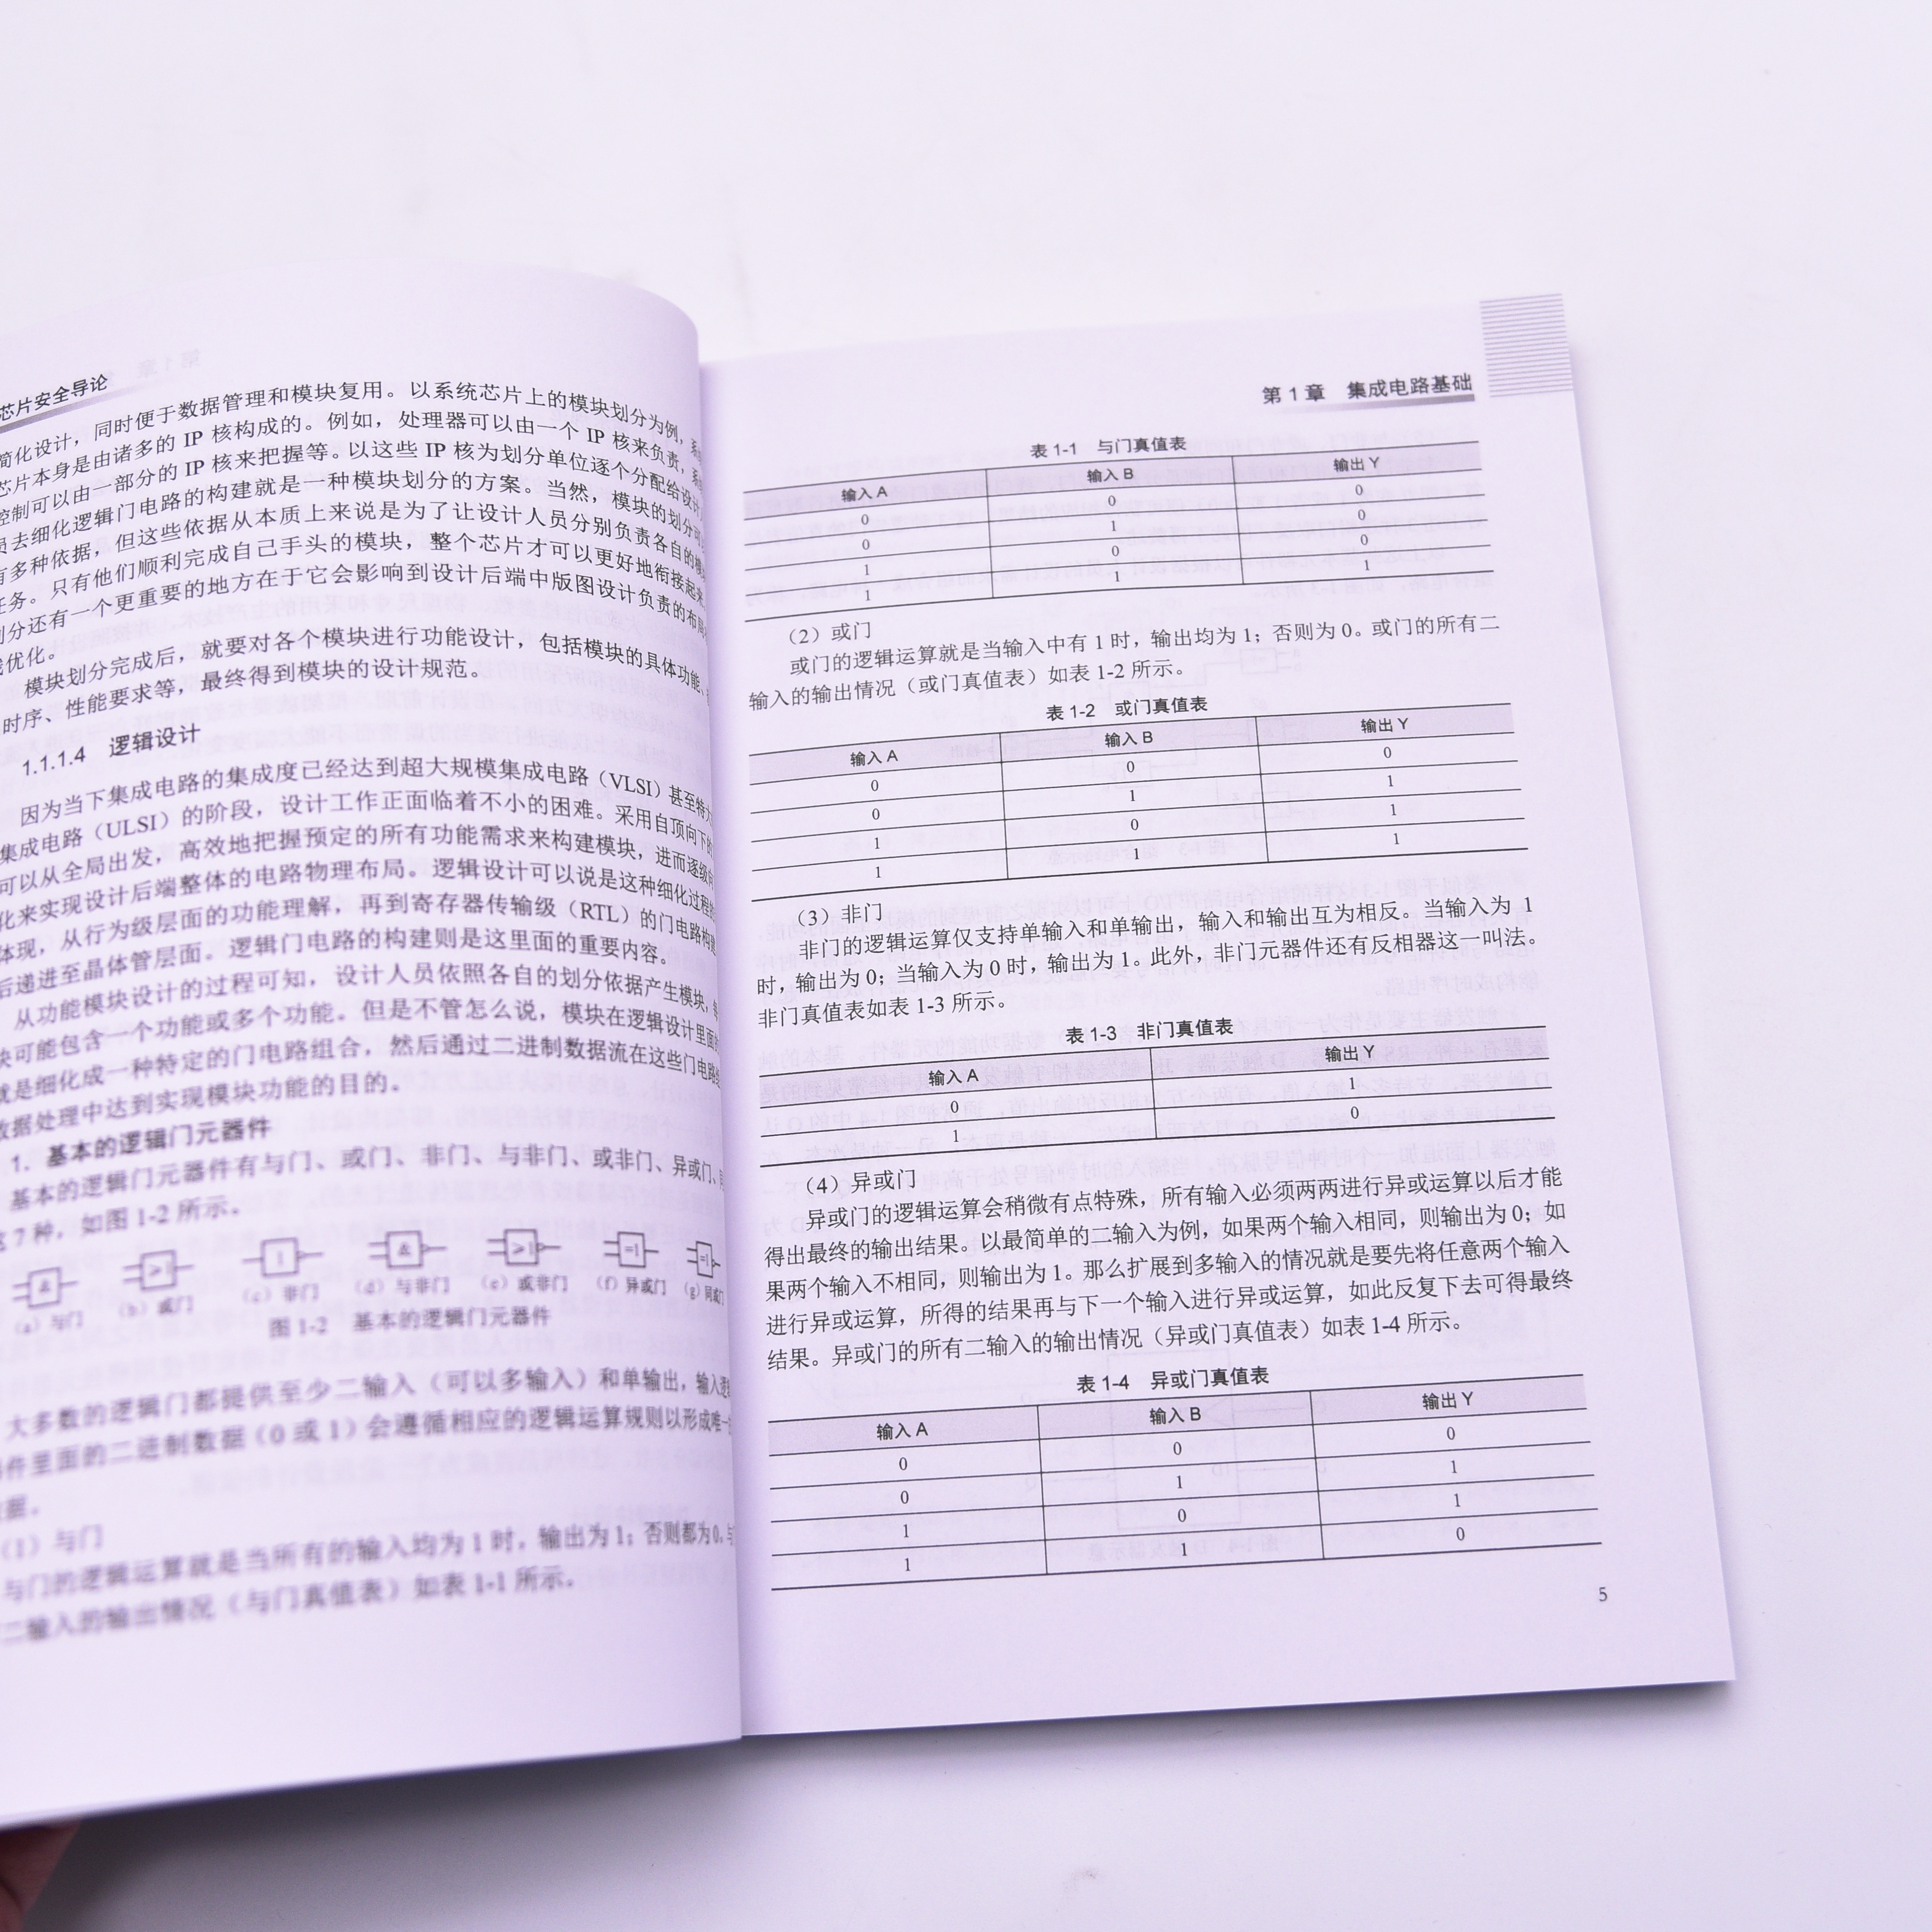 芯片安全导论
简化设计，同时便于数据管理和模块复用。以系统芯片上的模块划分为例，系
芯片本身是由诸多的 IP 核构成的。例如，处理器可以由一个 IP 核来负责，系
控制可以由一部分的 IP 核来把握等。以这些 IP 核为划分单位逐个分配给设计
员去细化逻辑门电路的构建就是一种模块划分的方案。当然，模块的划分可
有多种依据，但这些依据从本质上来说是为了让设计人员分别负责各自的模
任务。只有他们顺利完成自己手头的模块，整个芯片才可以更好地衔接起来。
划分还有一个更重要的地方在于它会影响到设计后端中版图设计负责的布局
优化。
模块划分完成后，就要对各个模块进行功能设计，包括模块的具体功能、
时序、性能要求等，最终得到模块的设计规范。
1.1.1.4 逻辑设计
因为当下集成电路的集成度已经达到超大规模集成电路（VLSI）甚至特大
集成电路（ULSI）的阶段，设计工作正面临着不小的困难。采用自顶向下的
可以从全局出发，高效地把握预定的所有功能需求来构建模块，进而逐级向
化来实现设计后端整体的电路物理布局。逻辑设计可以说是这种细化过程的
体现，从行为级层面的功能理解，再到寄存器传输级（RTL）的门电路构建
后递进至晶体管层面。逻辑门电路的构建则是这里面的重要内容。
从功能模块设计的过程可知，设计人员依照各自的划分依据产生模块，每
块可能包含一个功能或多个功能。但是不管怎么说，模块在逻辑设计里面
就是细化成一种特定的门电路组合，然后通过二进制数据流在这些门电路
数据处理中达到实现模块功能的目的。
1. 基本的逻辑门元器件
基本的逻辑门元器件有与门、或门、非门、与非门、或非门、异或门、同
这 7 种，如图 1-2 所示。
& >1 1 & >1 =1 =1
（a）与门 （b）或门 （c）非门 （d）与非门 （e）或非门 （f）异或门 （g）同或门
图 1-2 基本的逻辑门元器件
大多数的逻辑门都提供至少二输入（可以多输入）和单输出，输入逻
件里面的二进制数据（0 或 1）会遵循相应的逻辑运算规则以形成唯一
据。
（1）与门
与门的逻辑运算就是当所有的输入均为 1 时，输出为 1；否则都为 0。与
二输入的输出情况（与门真值表）如表 1-1 所示。
第 1 章 集成电路基础
表 1-1 与门真值表
输入 A 输入 B 输出 Y
0 0 0
0 1 0
1 0 0
1 1 1
（2）或门
或门的逻辑运算就是当输入中有 1 时，输出均为 1；否则为 0。或门的所有二
输入的输出情况（或门真值表）如表 1-2 所示。
表 1-2 或门真值表
输入 A 输入 B 输出 Y
0 0 0
0 1 1
1 0 1
1 1 1
（3）非门
非门的逻辑运算仅支持单输入和单输出，输入和输出互为相反。当输入为 1
时，输出为 0；当输入为 0 时，输出为 1。此外，非门元器件还有反相器这一叫法。
非门真值表如表 1-3 所示。
表 1-3 非门真值表
输入 A 输出 Y
0 1
1 0
（4）异或门
异或门的逻辑运算会稍微有点特殊，所有输入必须两两进行异或运算以后才能
得出最终的输出结果。以最简单的二输入为例，如果两个输入相同，则输出为 0；如
果两个输入不相同，则输出为 1。那么扩展到多输入的情况就是要先将任意两个输入
进行异或运算，所得的结果再与下一个输入进行异或运算，如此反复下去可得最终
结果。异或门的所有二输入的输出情况（异或门真值表）如表 1-4 所示。
表 1-4 异或门真值表
输入 A 输入 B 输出 Y
0 0 0
0 1 1
1 0 1
1 1 0
5